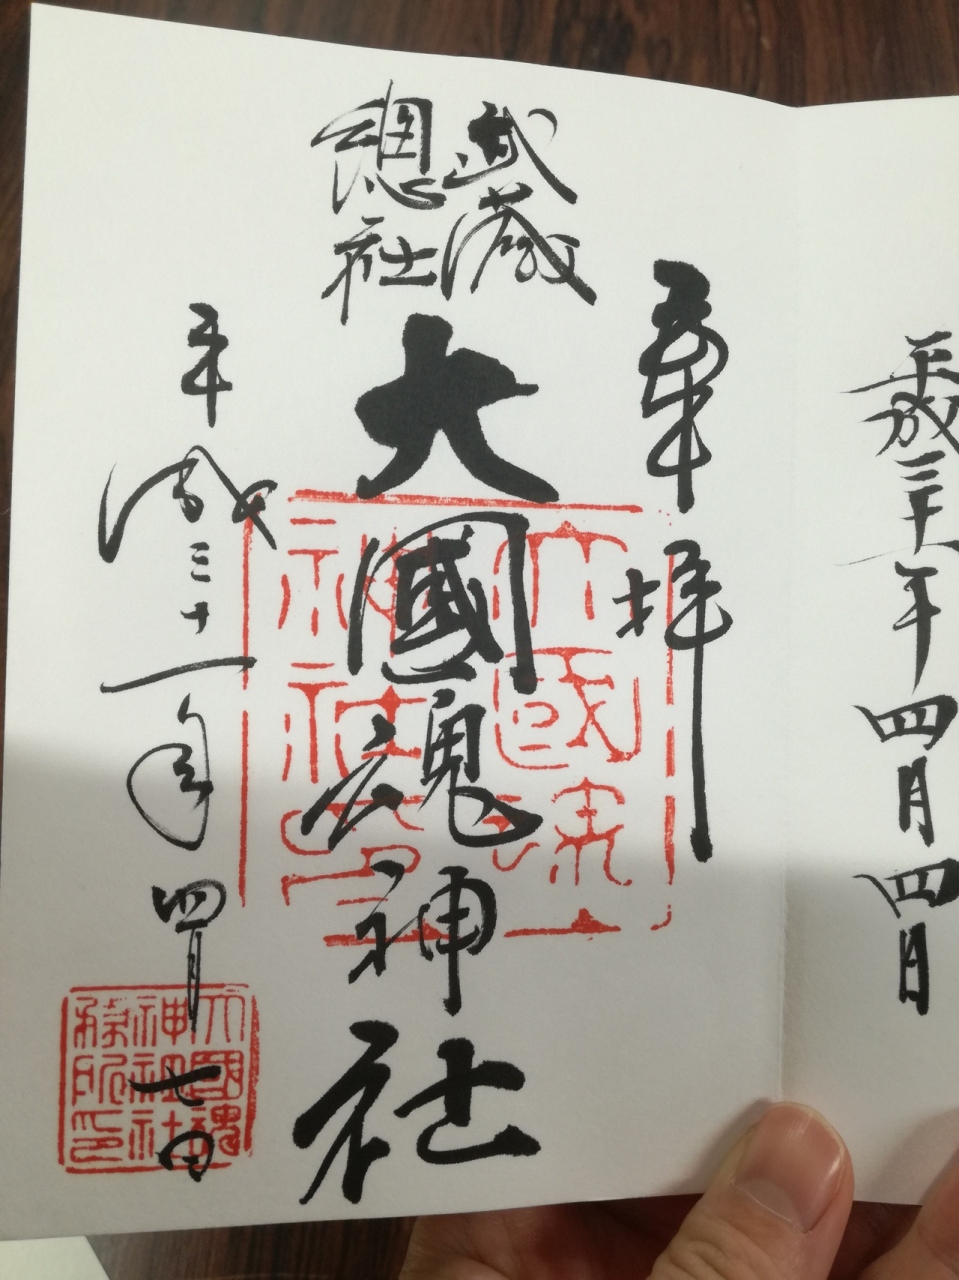 平成三十一年四月四日
奉拝
武蔵
總社
大國魂神社
平成三十一年四月七日
大國魂
神社印
大國魂
神社社
務所印